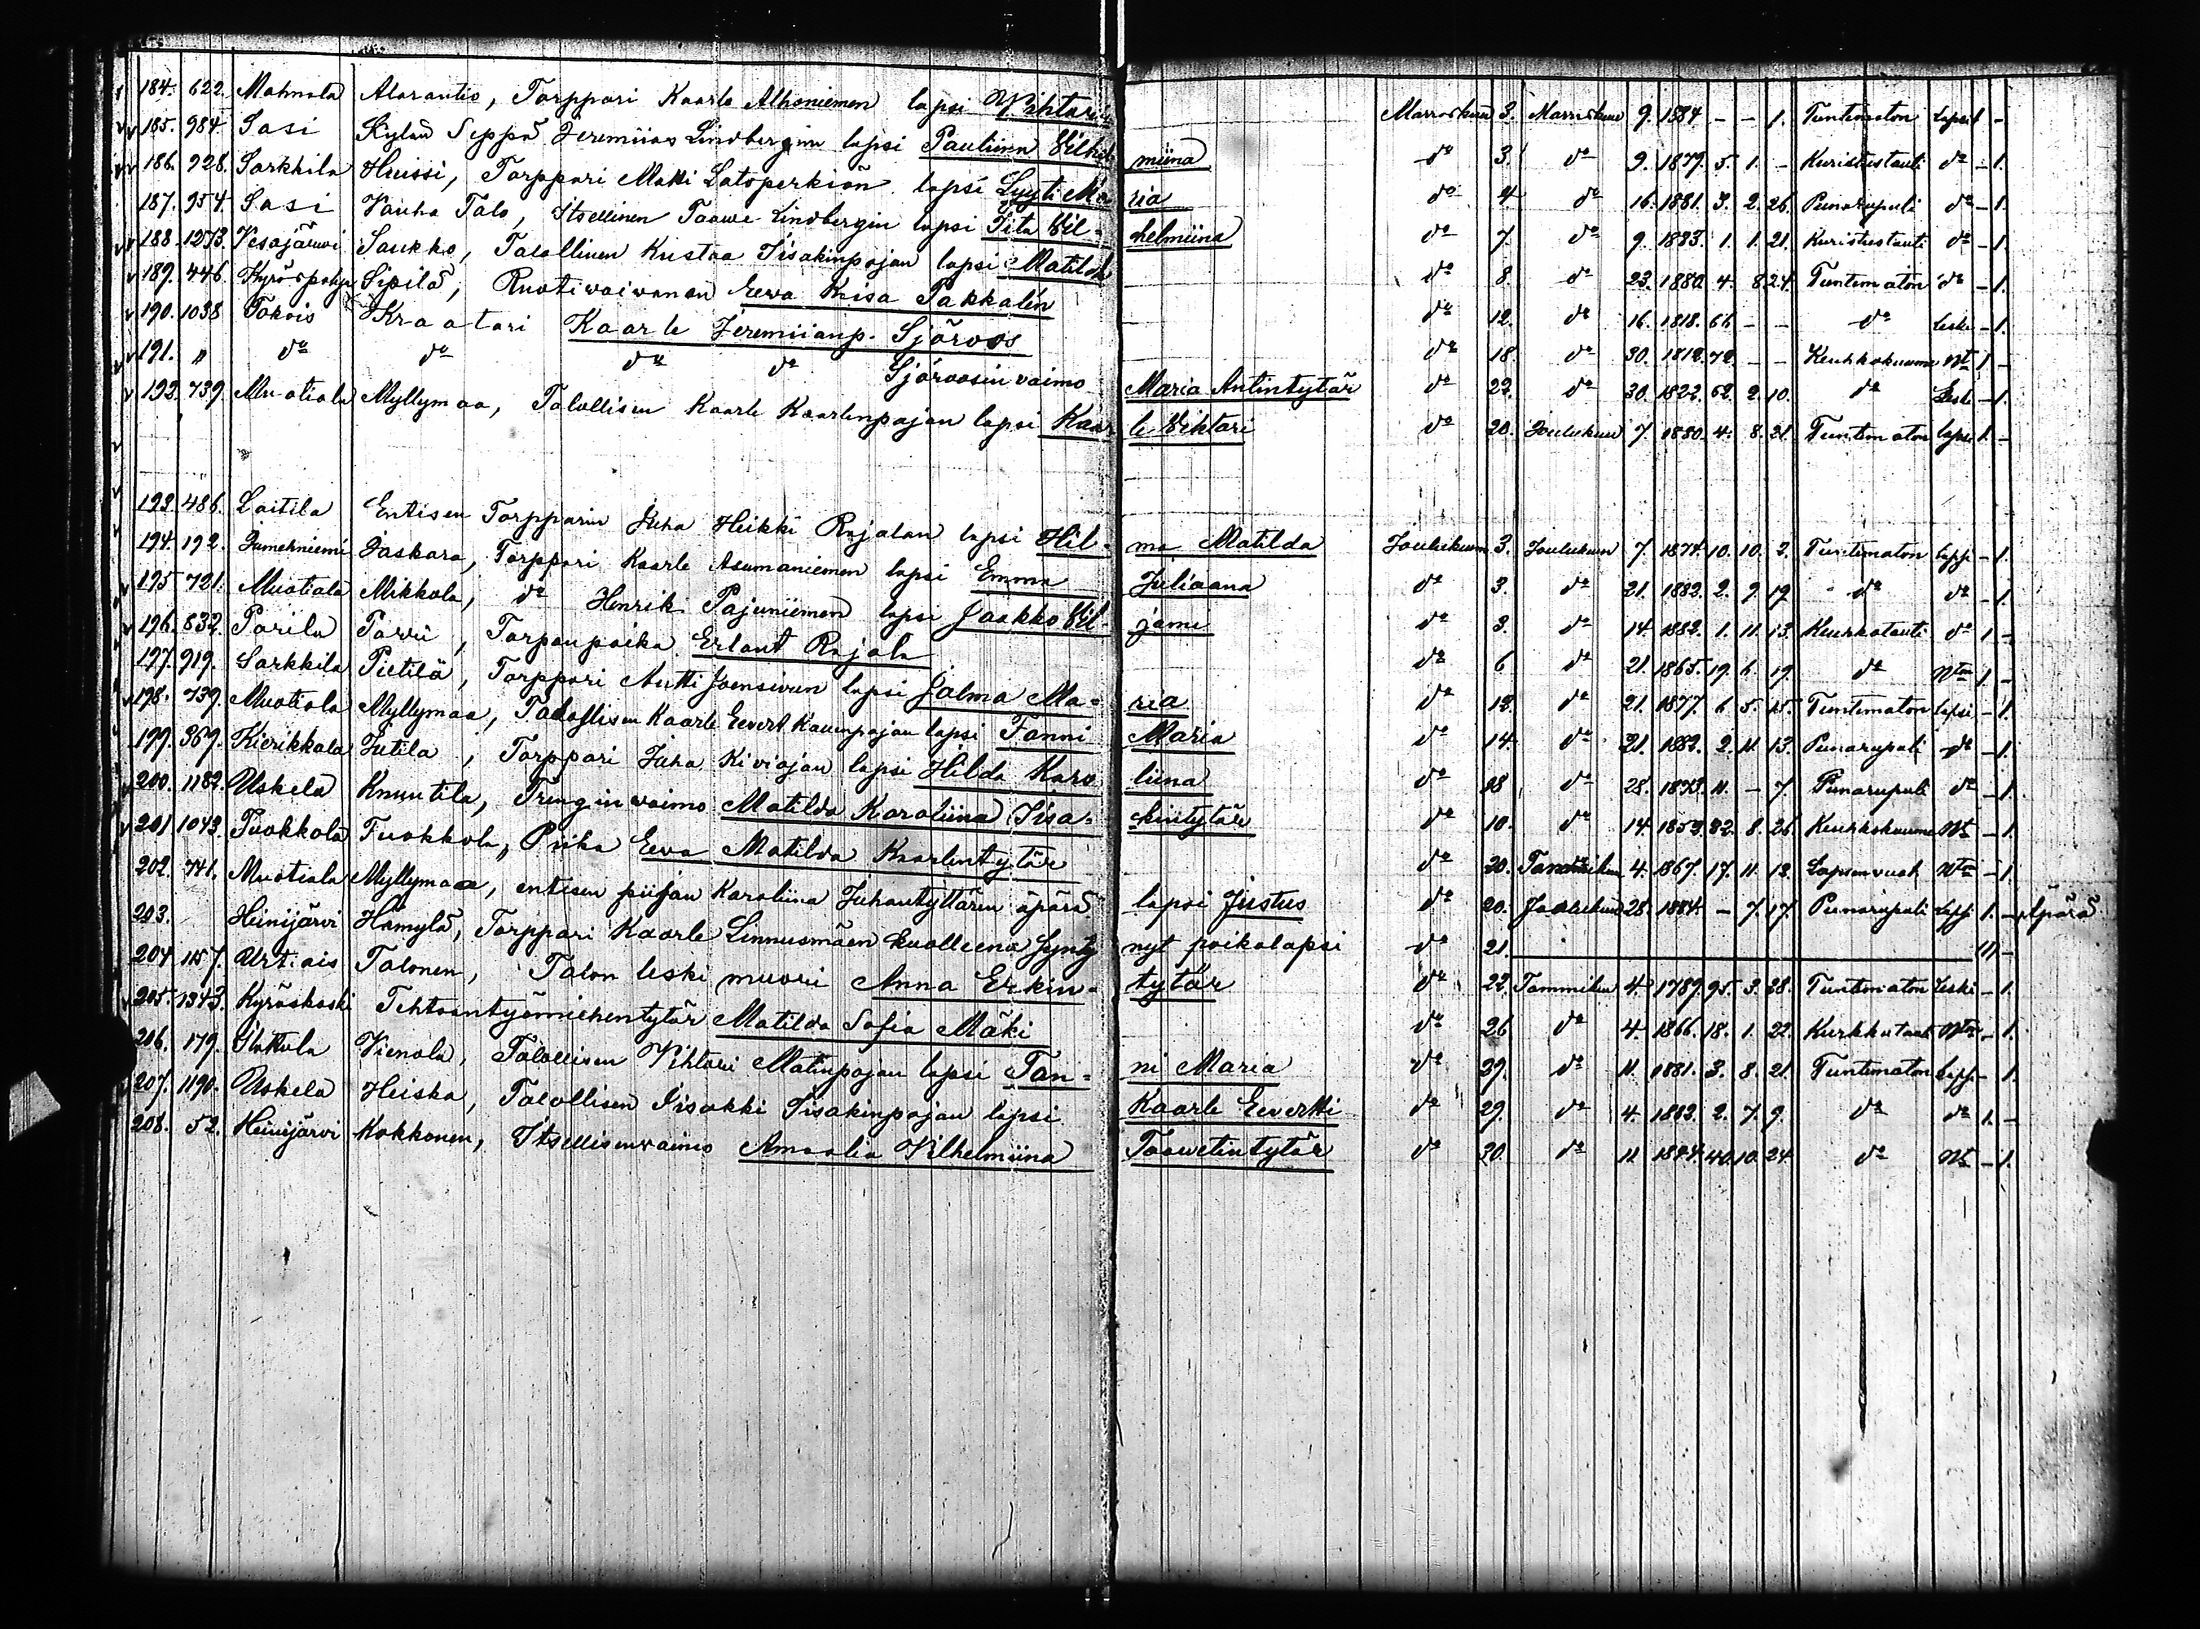 184. 622. Mahnala Alarantio, Torppari Kaarle Alhoniemen lapsi Vihtori Marraskuu 3. Marraskuu 9. 1884 – – 1. Tuntematon Lapsi 1 –
185. 984 Sasi Kylän Seppä Jeremiias Lindbergin lapsi Pauliina Vilhel miina do 3. do 9. 1879. 5. 1. – Kuristustauti do – 1.
186. 928. Sarkkila Huissi, Torppari Matti Latoperkiön lapsi Lyyti Ma ria do 4 do 16. 1881. 3. 2. 26. Punarupuli do – 1.
187. 954. Sasi Vanha Talo, Itsellinen Taawe Lindbergin lapsi Iita Vil- helmiina do 7. do 9. 1883. 1. 1. 21. Kuristustauti do – 1.
188. 1273. Vesajärwi Saukko, Talollinen Kustaa Iisakinpojan lapsi Matilda do 8. do 23. 1880. 4. 8. 24. Tuntematon do – 1.
189. 446. Kyröspohja Sipilä, Ruotiwaiwanen Eewa Kaisa Pakkalin do 12. do 16. 1818. 66 – – do Leski – 1.
190. 1038 Tokois Kraatari Kaarle Jeremiianp. Sjöroos do 18. do 30. 1812. 72. – – Keuhkokuume Nt 1 –
191. " do do do do Sjöroosin vaimo Maria Antintytär do 22. do 30. 1822. 62. 2. 10. do Leski – 1.
192. 739. Muotiala Myllymaa, Talollisen Kaarle Kaarlenpojan lapsi Kaar le Vihtori do 20. Joulukuu 7. 1880. 4. 8. 21. Tuntematon lapsi 1. –
193. 486. Laitila Entisen Torpparin Juha Heikki Rajalan lapsi Hil- ma Matilda Joulukuu 3. Joulukuu 7. 1874. 10. 10. 2. Tuntematon lapsi – 1.
194. 192. Jumehniemi Jaskara, Torppari Kaarle Asumaniemen lapsi Emma Juliaana do 3. do 21. 1882. 2. 9. 19 do do – 1.
195 721. Muotiala Mikkola, do Henriki Pajuniemen lapsi Jaakko Vil- jami do 3. do 14. 1882. 1. 11. 13. Keuhkotauti do 1 –
196. 832. Parila Parri, Torpanpoika Erlant Rajala do 6 do 21. 1865. 19. 6. 19 do Ntn 1. –
197. 919. Sarkkila Pietilä, Torppari Antti Joensivun lapsi Jalma Ma- ria do 12. do 21. 1877. 6 5. 15. Tuntematon Lapsi – 1.
198. 739. Muotiala Myllymaa, Talollisen Kaarle Eevert Kaunpojan lapsi Fanni Maria do 14. do 21. 1882. 2. 11. 13. Punarupuli do – 1.
199. 369. Kierikkala Jutila, Torppari Juha Kiviojan lapsi Hilda Karo liina do 18 do 28. 1873. 11. – 7. Punarupuli do – 1.
200. 1182. Uskela Knuutila, Renginvaimo Matilda Karoliina Iisa- kintytär do 10. do 14. 1852. 32. 8. 26. Keuhkokuume Nt – 1.
201 1043. Tuokkola Tuokkola, Piika Eeva Matilda Kaarlentytär do 20. Tammikuu 4. 1867. 17. 11. 12. Lapsenvuot Ntn – 1
202. 741. Muotiala Myllymaa, entisen piijan Karoliina Juhantyttären äpärä lapsi Justus do 20. Joulukuu 28. 1884. – 7. 17. Punarupuli Lapsi 1. – Äpärä
203. Heinijärvi Hämylä, Torppari Kaarle Linnusmäen kuolleena synty nyt poikalapsi do 21. 1) –
204 1157. Urtiais Talonen, Talon leski muori Anna Erkin- tytär do 22. Tammikuu 4. 1789. 95. 3. 28. Tuntematon Leski – 1.
205. 1343. Kyröskoski Tehtaantyömiehentytär Matilda Sofia Mäki do 26 do 4. 1866. 18. 1. 22. Kurkkutauti Ntn – 1.
206. 179. Hattula Vienola, Talollisen Vihtori Matinpojan lapsi Fan- ni Maria do 29. do 11. 1881. 3. 8. 21. Tuntematon Lapsi – 1.
207. 1190. Uskela Heiska, Talollisen Iisakki Iisakinpojan lapsi Kaarle Eevertti do 29. do 4. 1882. 2. 7. 9. do do 1. –
208. 52. Heinijärvi Kokkonen, Itsellisenvaimo Amaalia Vilhelmiina Taavetintytär do 30. do 11 1844. 40. 10. 24. do Nt – 1.